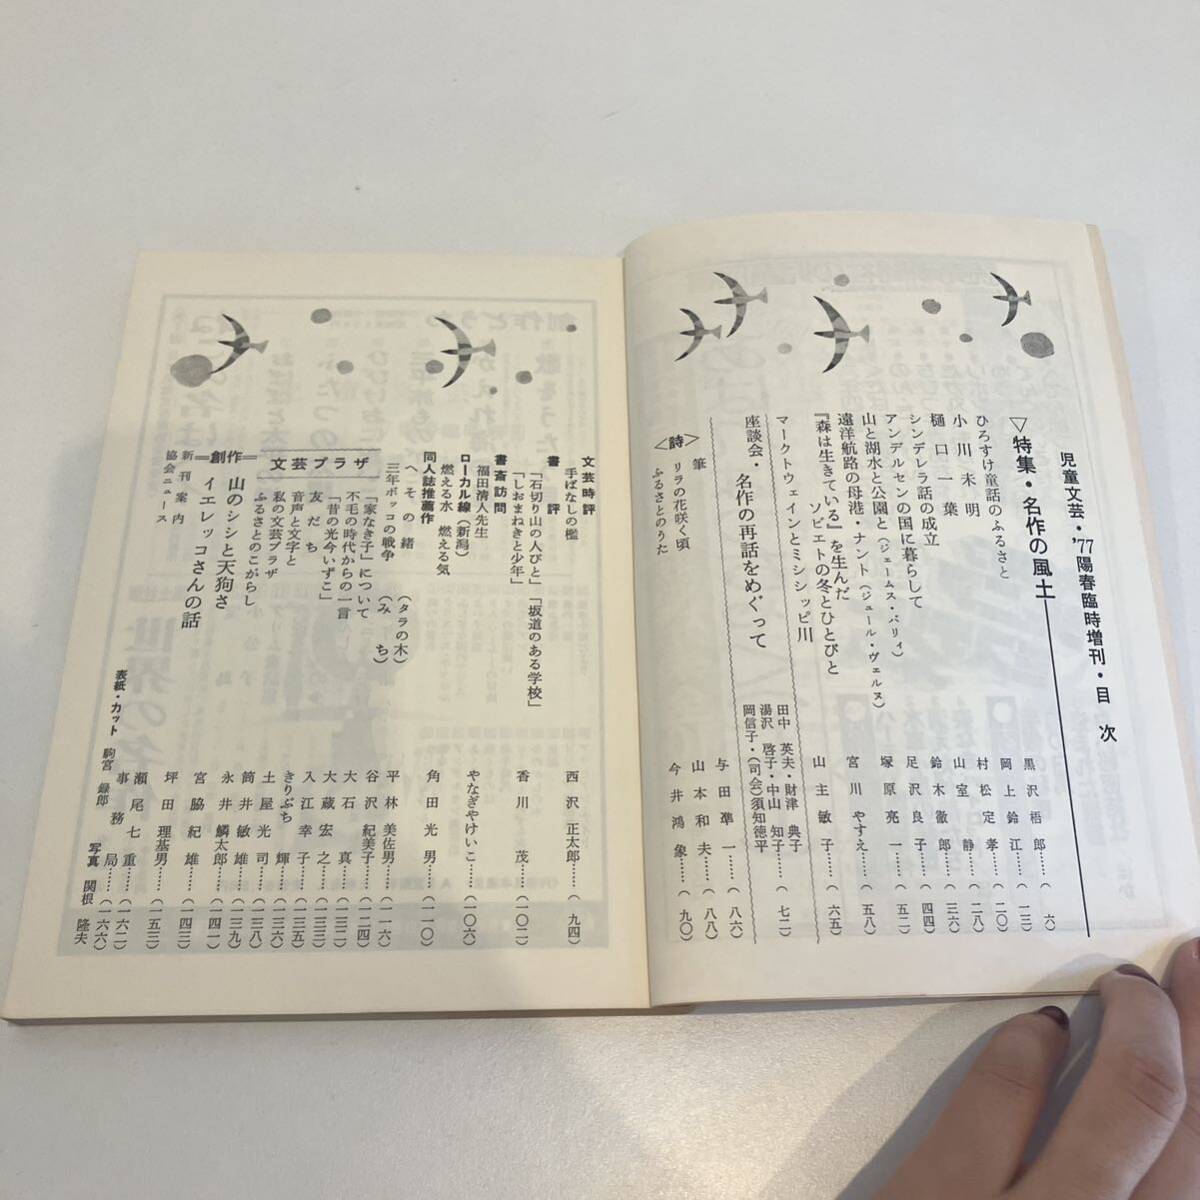 児童文芸・'77陽春臨時増刊・目次
▽特集・名作の風土
ひろすけ童話のふるさと 黒沢梧郎……(六)
小川未明 岡上鈴江……(一三)
樋口一葉 村松定孝……(二〇)
シンデレラ話の成立 山室静……(二八)
アンデルセンの国に暮らして 鈴木徹郎……(三六)
山と湖水と公園と(ジェームス・バリィ) 足沢良子……(四四)
遠洋航路の母港・ナント(ジュール・ヴェルヌ) 塚原亮一……(五二)
『森は生きている』を生んだ
ソビエトの冬とひとびと 宮川やすえ……(五八)
マークトウェインとミシシッピ川 山主敏子……(六五)
座談会・名作の再話をめぐって
田中英夫・財津典子
湯沢啓子・中山知子
岡信子・(司会)須知徳平……(七二)
<詩>
筆 与田凖一……(八六)
リラの花咲く頃 山本和夫……(八八)
ふるさとのうた 今井鴻象……(九〇)
文芸時評
手ばなしの檻 西沢正太郎……(九四)
書評
「石切り山の人びと」「坂道のある学校」
「しおまねきと少年」 香川茂……(一〇二)
書斎訪問
福田清人先生 やなぎやけいこ……(一〇六)
ローカル線(新潟)
燃える水 燃える気 角田光男……(一一〇)
同人誌推薦作
へその緒(タラの木) 平林美佐男……(一一六)
三年ボッコの戦争(みち) 谷沢紀美子……(一二四)
文芸プラザ
「家なき子」について 大石真……(一三二)
不毛の時代からの一言 大蔵宏之……(一三三)
「昔の光今いずこ」 入江幸子……(一三五)
友だち きりぶち輝……(一三六)
音声と文字と 土屋光司……(一三八)
私の文芸プラザ 筒井敏雄……(一三九)
ふるさとのこがらし 永井鱗太郎……(一四一)
=創作=
山のシシと天狗さ 宮脇紀雄……(一四三)
イエレッコさんの話 坪田理基男……(一五三)
新刊案内 瀬尾七重……(一六二)
協会ニュース 事務局……(一六六)
表紙・カット 駒宮録郎
写真 関根隆夫